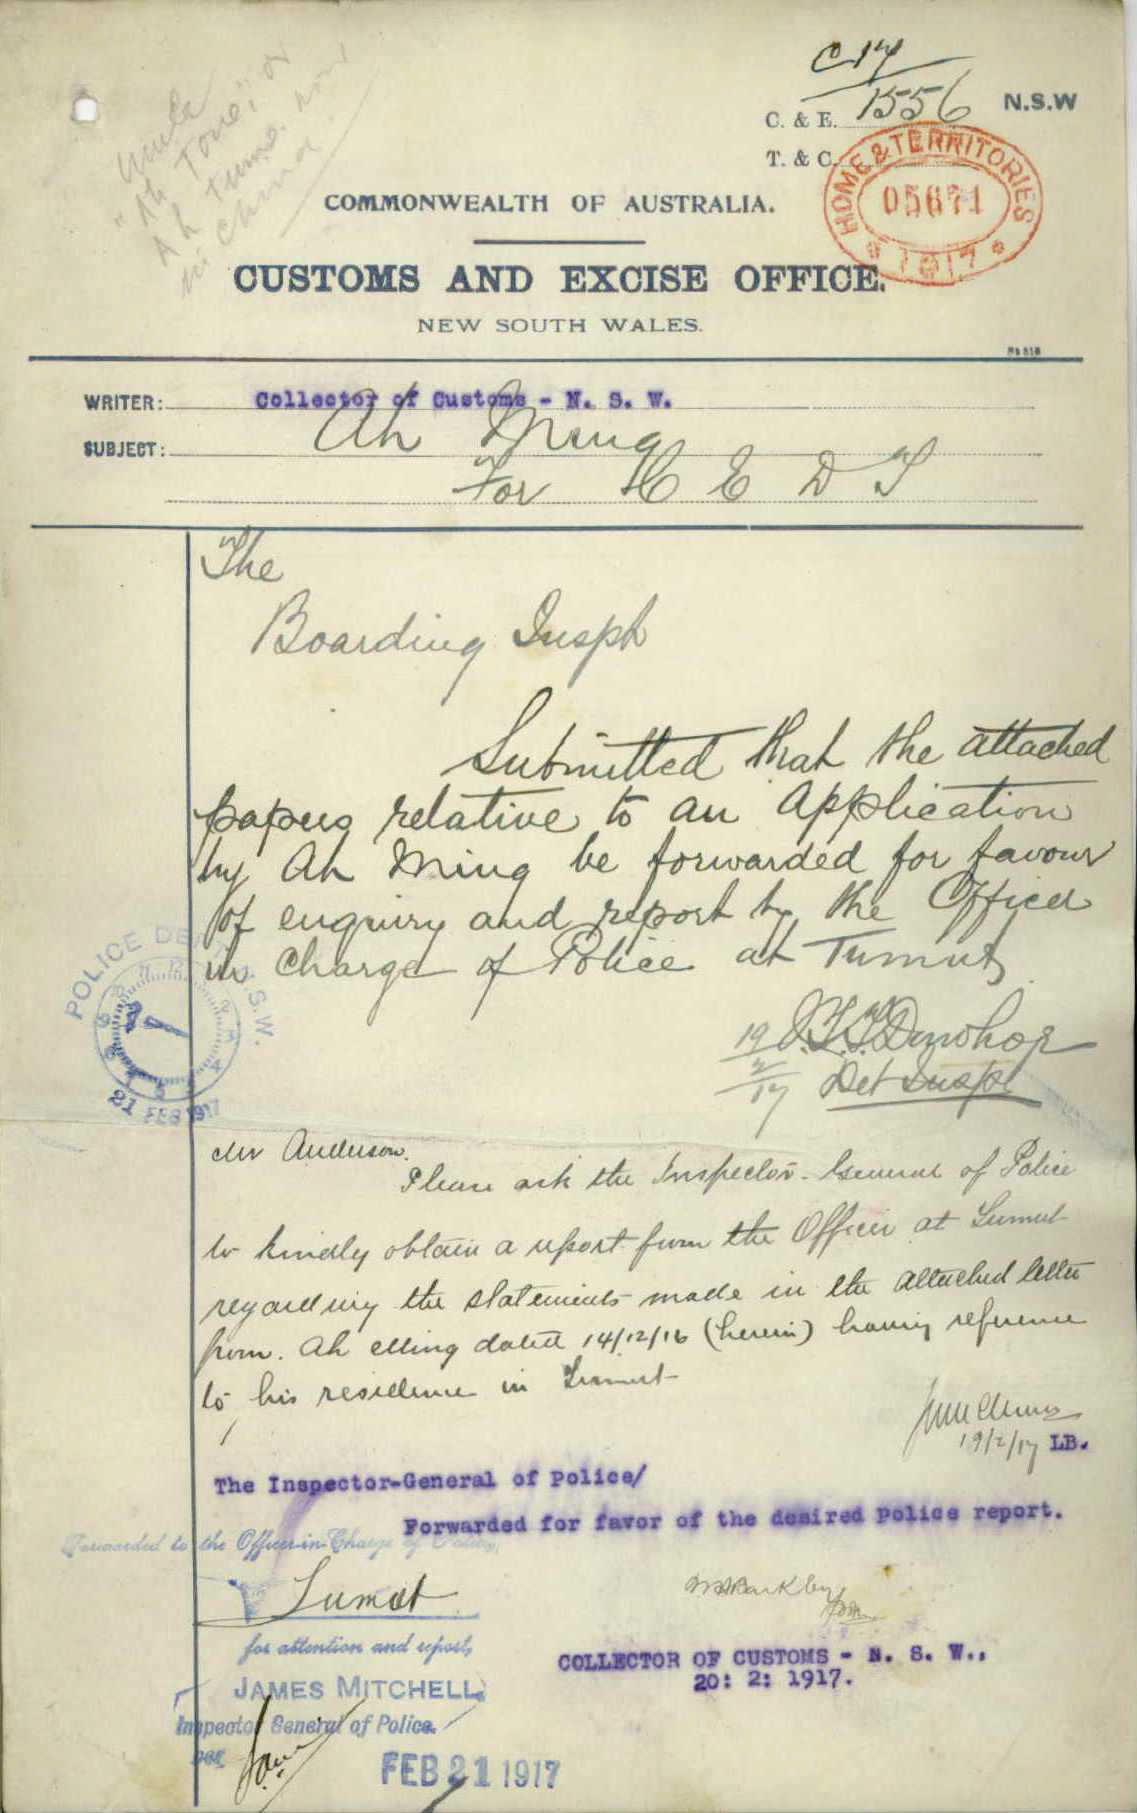 C 17
C. & E. 1556 N.S.W
T. & C.
HOME & TERRITORIES
05671
* 1917 *
Uncle
"Ah Tone" or
Ah
in China
COMMONWEALTH OF AUSTRALIA.
CUSTOMS AND EXCISE OFFICE.
NEW SOUTH WALES.
WRITER: Collector of Customs - N. S. W.
SUBJECT: Ah Ming
For C E D T
The
Boarding Inspr
Submitted that the attached
papers relative to an Application
by Ah Ming be forwarded for favour
of enquiry and report by the Officer
in Charge of Police at Tumut
19/2/17
Det Inspr
POLICE DEPT N.S.W.
21 FEB 1917
Mr Anderson.
Please ask the Inspector-General of Police
to kindly obtain a report from the Officer at Tumut
regarding the statements made in the attached letter
from Ah Ming dated 14/12/16 (herein) having reference
to his residence in Tumut
19/2/17 LB.
The Inspector-General of Police/
Forwarded for favor of the desired Police report.
Forwarded to the Officer-in-Charge of Police,
Tumut
for attention and report,
JAMES MITCHELL,
Inspector General of Police.
per
FEB 21 1917
COLLECTOR OF CUSTOMS - N. S. W.,
20: 2: 1917.